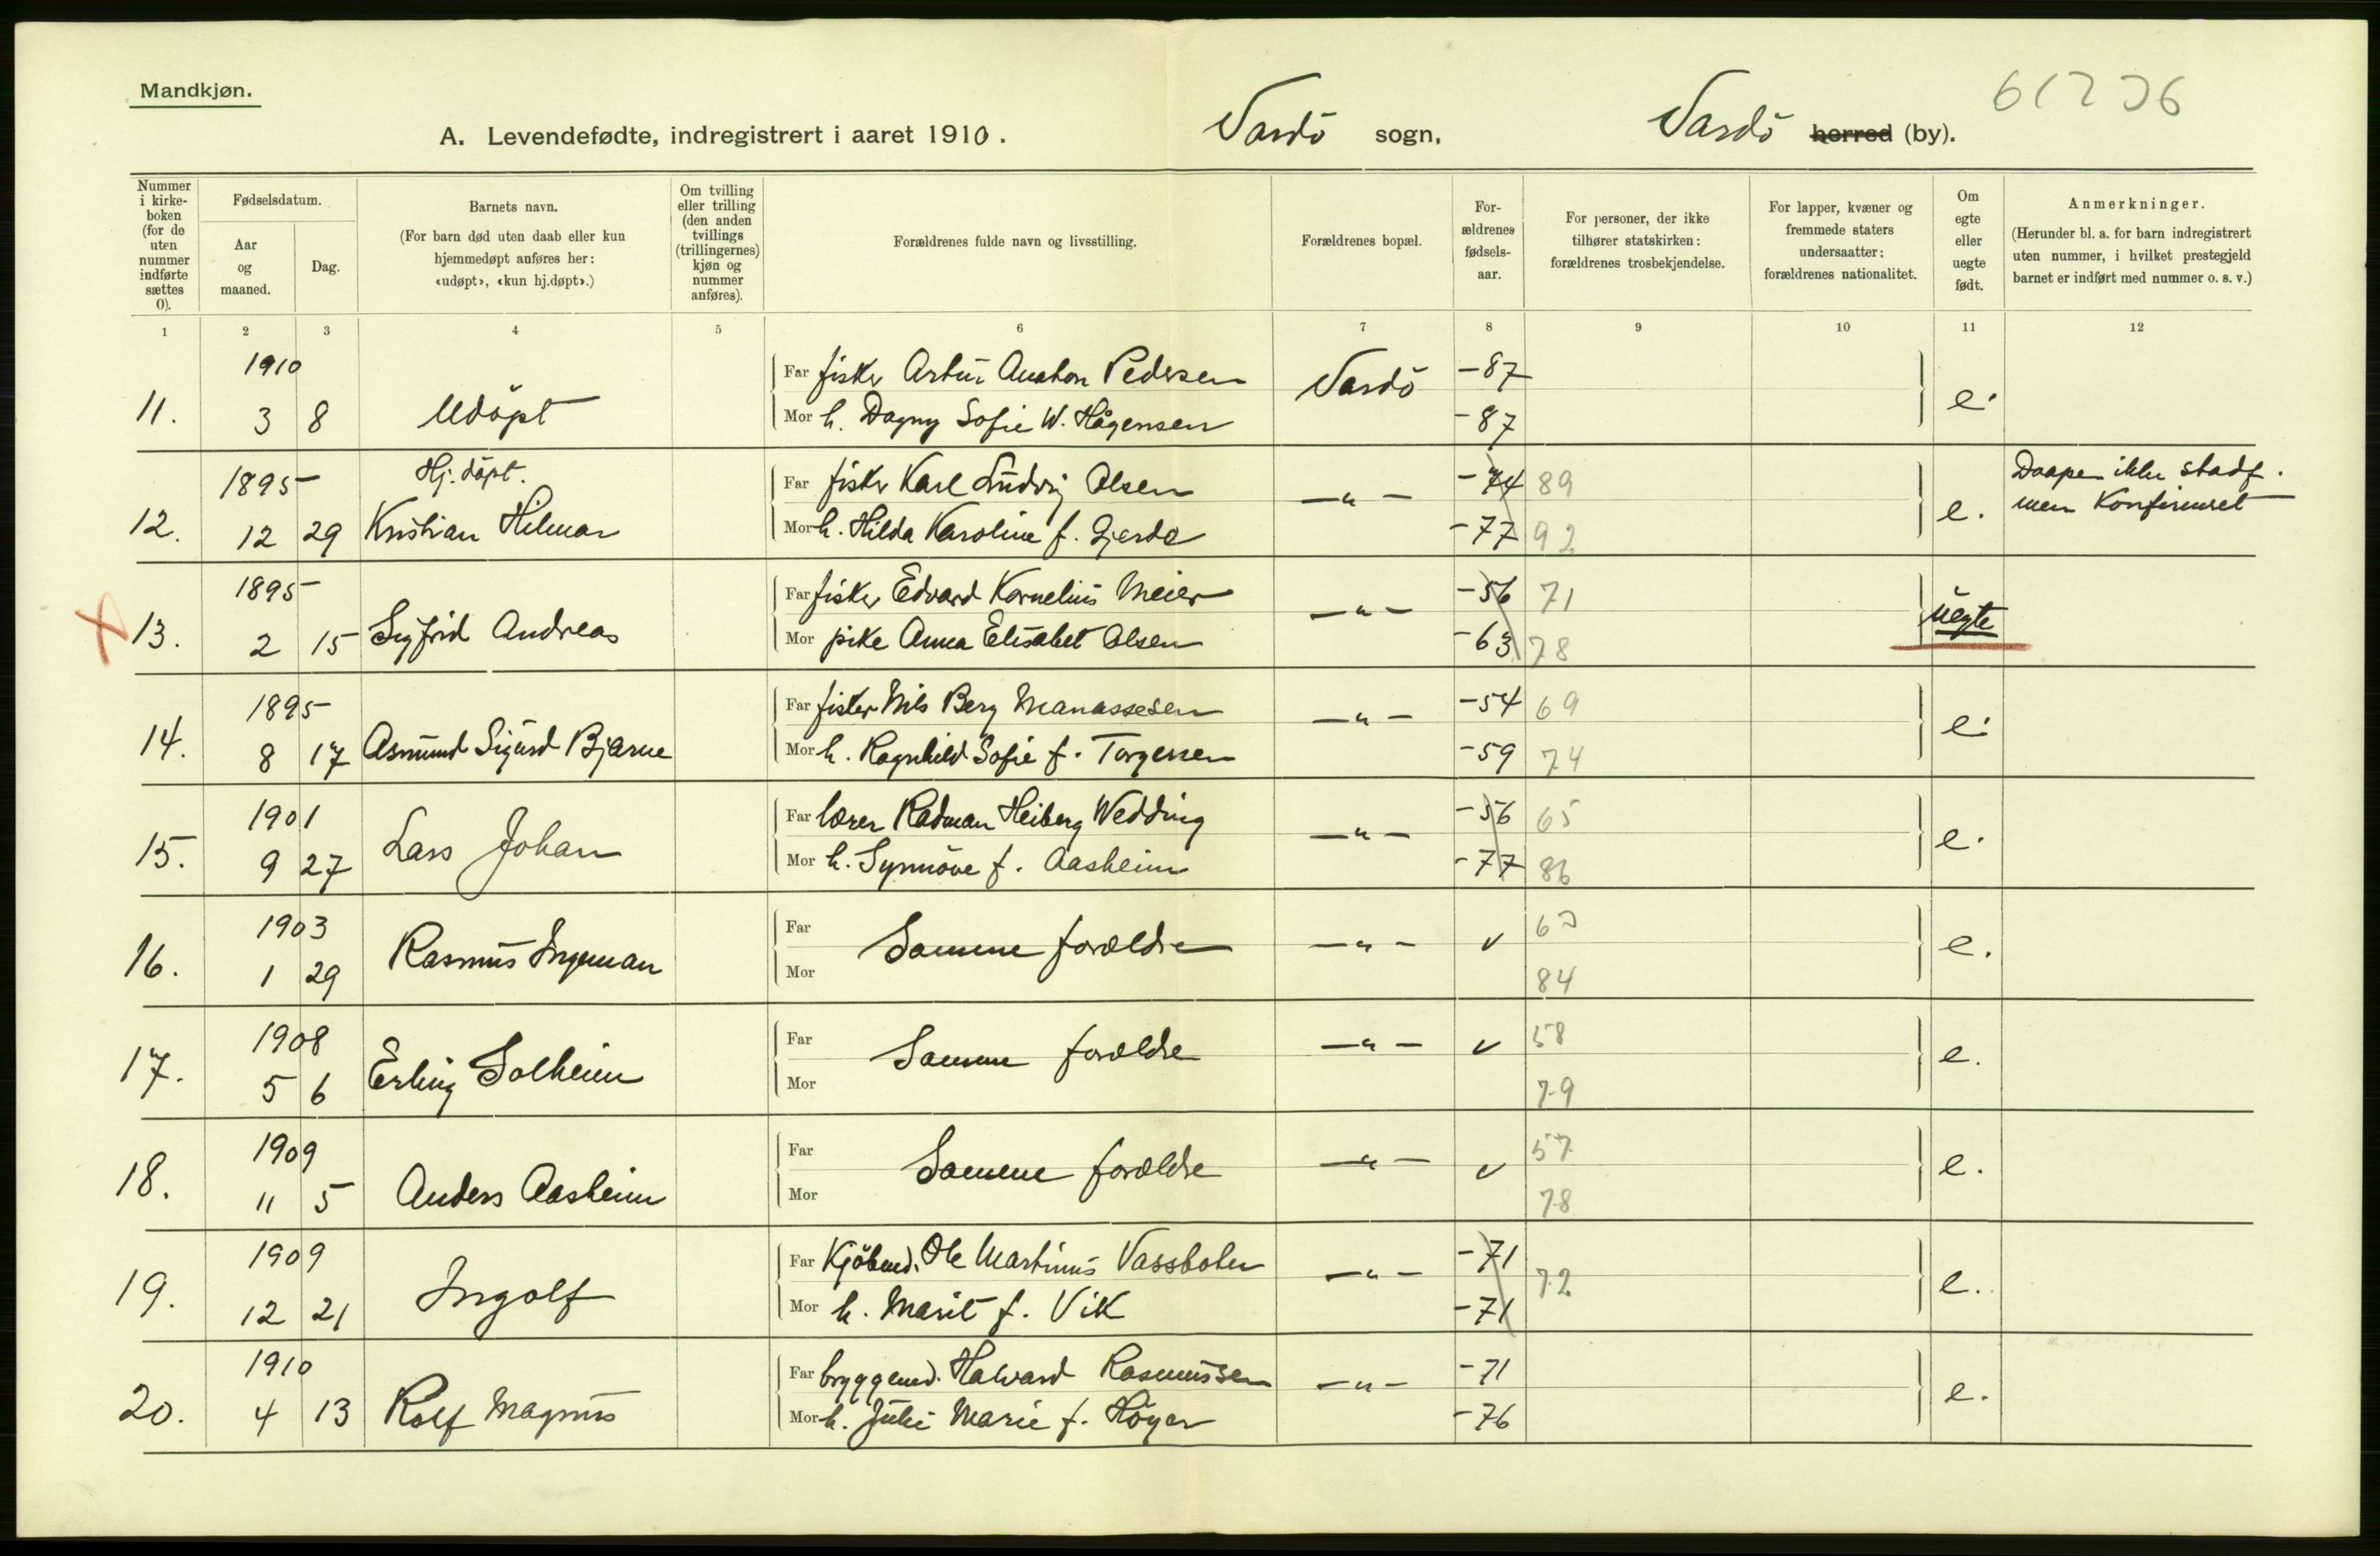 Mandkjøn.
61236
A. Levendefødte, indregistrert i aaret 1910. Vardö sogn, Vardö herred (by).
Nummer i kirke-boken (for de uten nummer indførte sættes 0).
Fødselsdatum.
Aar og maaned.
Dag.
Barnets navn.
(For barn død uten daab eller kun hjemmedøpt anføres her: «udøpt», «kun hj.døpt».)
Om tvilling eller trilling (den anden tvillings (trillingernes) kjøn og nummer anføres).
Forældrenes fulde navn og livsstilling.
Forældrenes bopæl.
For-ældrenes fødsels-aar.
For personer, der ikke tilhører statskirken: forældrenes trosbekjendelse.
For lapper, kvæner og fremmede staters undersaatter: forældrenes nationalitet.
Om egte eller uegte født.
Anmerkninger.
(Herunder bl. a. for barn indregistrert uten nummer, i hvilket prestegjeld barnet er indført med nummer o. s. v.)
1 2 3 4 5 6 7 8 9 10 11 12
1910 Far fisker Artur Pedersen Vardö -87
11. 3 8 Udöpt Mor h. Dagny Sofie W. Hågensen -87 e.
1895 Hj. döpt. Far fisker Karl Ludvig Olsen -„- -74 89 Daapen ikke stadf.
12. 12 29 Kristian Hilmar Mor h. Hilda Karoline f. Gjerde -77 92 e. men Konfirmeret
1895 Far fisker Edvard Kornelius Meier -„- -56 71
13. 2 15 Sigfrid Andreas Mor pike Anna Elisabet Olsen -63 78 uegte
1895 Far fisker Nils Berg Manassesen -„- -54 69
14. 8 17 Asmund Sigurd Bjarne Mor h. Ragnhild Sofie f. Torgersen -59 74 e.
1901 Far lærer Radman Heiberg Wedding -„- -56 65
15. 9 27 Lars Johan Mor h. Synnöve f. Aasheim -77 86 e.
1903 Far Samme forældre -„- v 63
16. 1 29 Rasmus Ingeman Mor 84 e.
1908 Far Samme forældre -„- v 58
17. 5 6 Erling Solheim Mor 79 e.
1909 Far Samme forældre -„- v 57
18. 11 5 Anders Aasheim Mor 78 e.
1909 Far Kjöbmd. Ole Martinus Vassbotn -„- -71 72
19. 12 21 Ingolf Mor h. Marit f. Vik -71 e.
1910 Far bryggemd. Halvard Rasmussen -„- -71
20. 4 13 Rolf Magnus Mor h. Julie Marie f. Höyer -76 e.